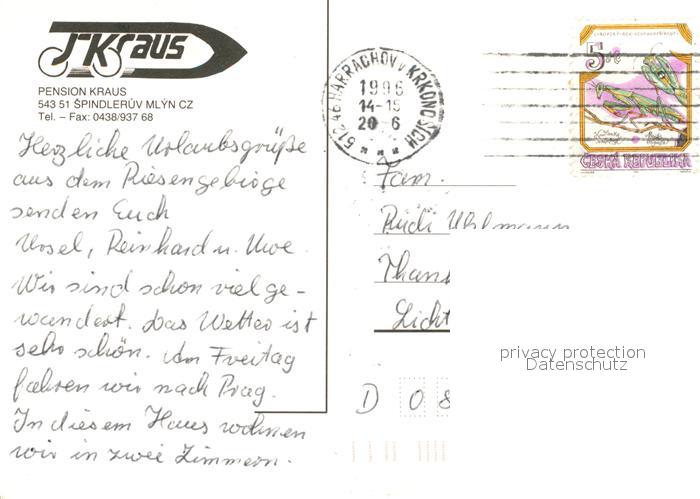 JKraus
PENSION KRAUS
543 51 ŠPINDLERŮV MLÝN CZ
Tel. – Fax: 0438/937 68
Herzliche Urlaubsgrüße
aus dem Riesengebirge
senden Euch
Ursel, Reinhard u. Uwe.
Wir sind schon viel ge-
wandert. Das Wetter ist
sehr schön. Am Freitag
fahren wir nach Prag.
In diesem Haus wohnen
wir in zwei Zimmern.
512 46 HARRACHOV v KRKONOŠÍCH
1996
14-15
20 6
5 Kč
ČESKÁ REPUBLIKA
Fam.
Rudi
D 08
privacy protection
Datenschutz